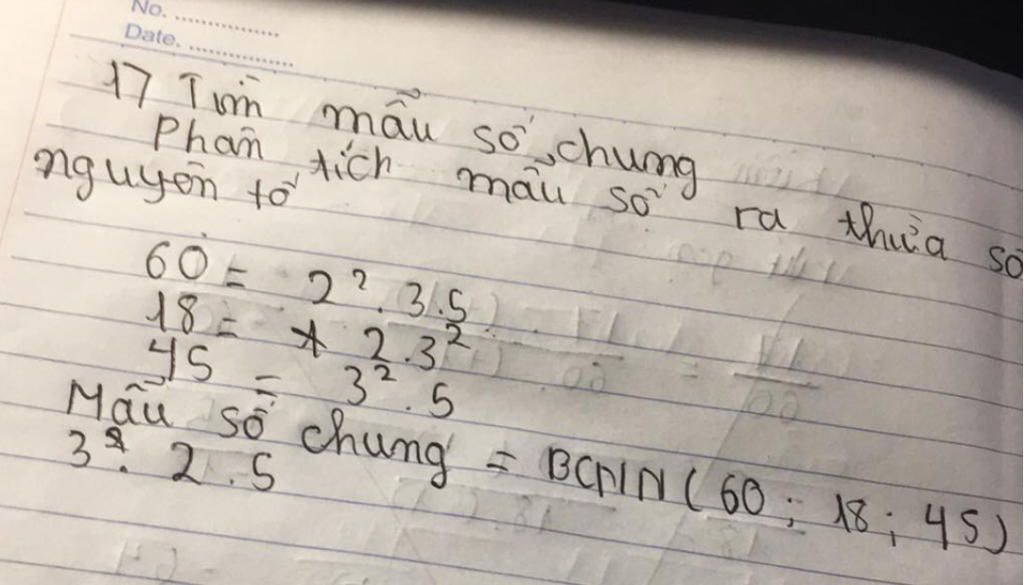 No. ....................
Date. ....................
17 Tìm mẫu số chung
Phân tích mẫu số ra thừa số
nguyên tố
60 = 2². 3.5
18 = 2.3²
45 = 3². 5
Mẫu số chung = BCNN ( 60 ; 18 ; 45 )
3². 2 . 5